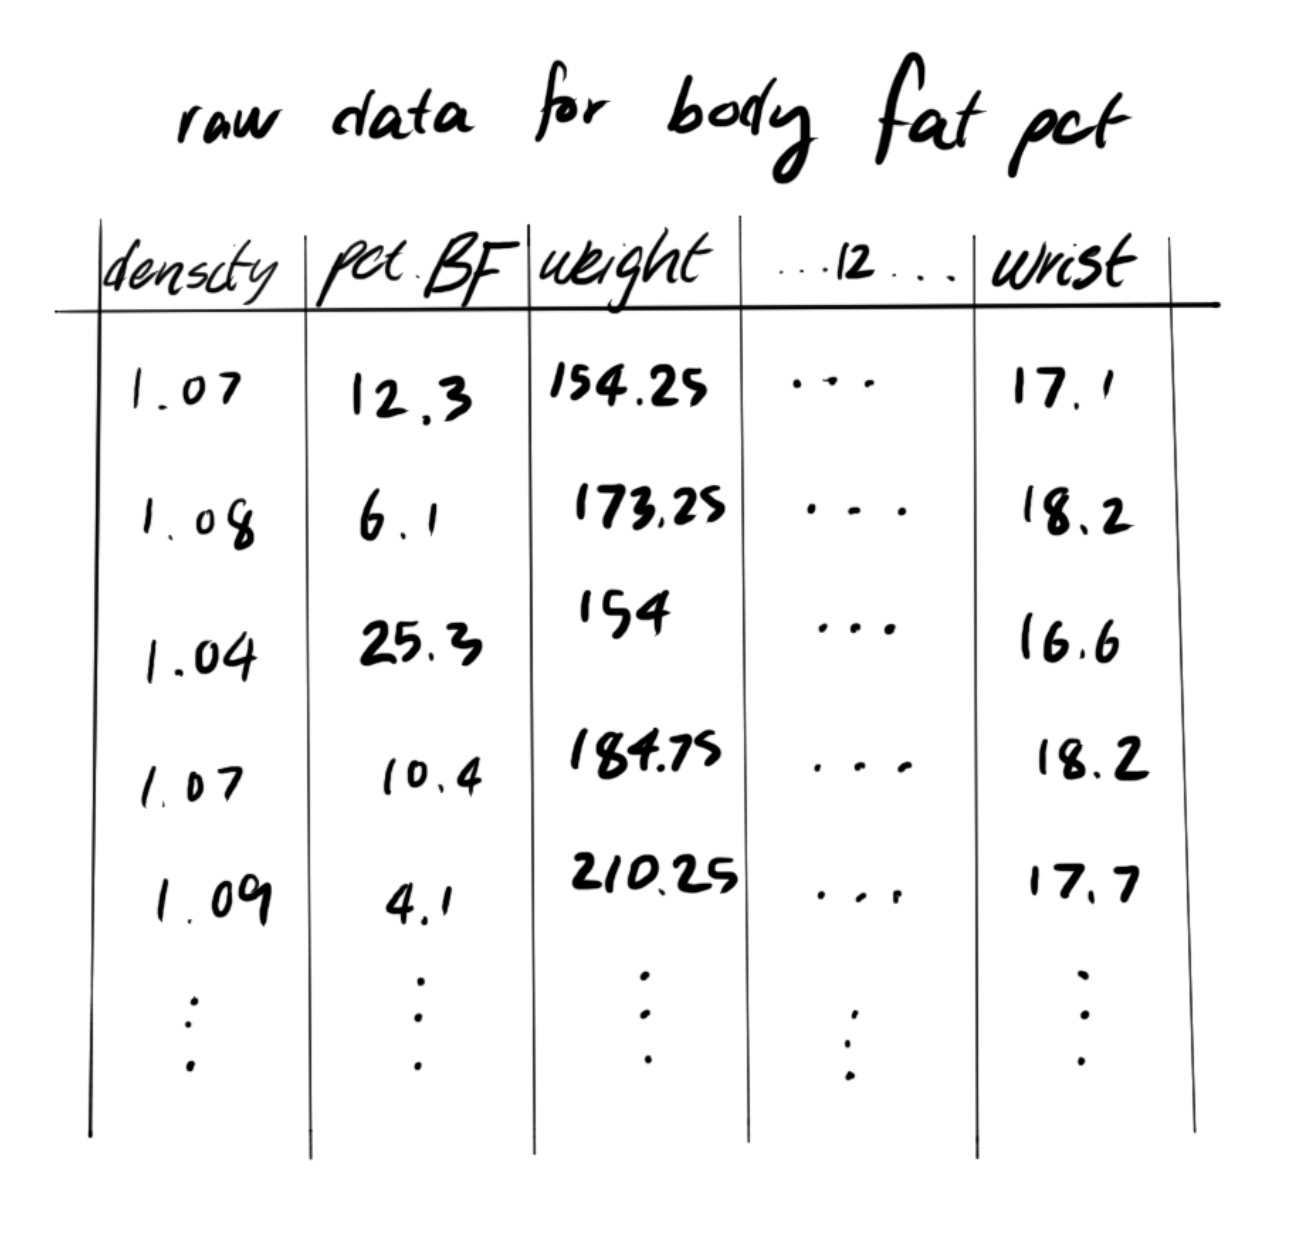 raw data for body fat pct
density pct. BF weight ...12... wrist
1.07 12.3 154.25 ... 17.1
1.08 6.1 173.25 ... 18.2
1.04 25.3 154 ... 16.6
1.07 10.4 184.75 ... 18.2
1.09 4.1 210.25 ... 17.7